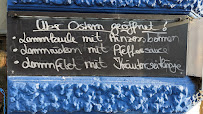 Über Ostern geöffnet!
• Lammkeule mit Prinzessbohnen
• Lammrücken mit Pfeffersauce
• Lammfilet mit